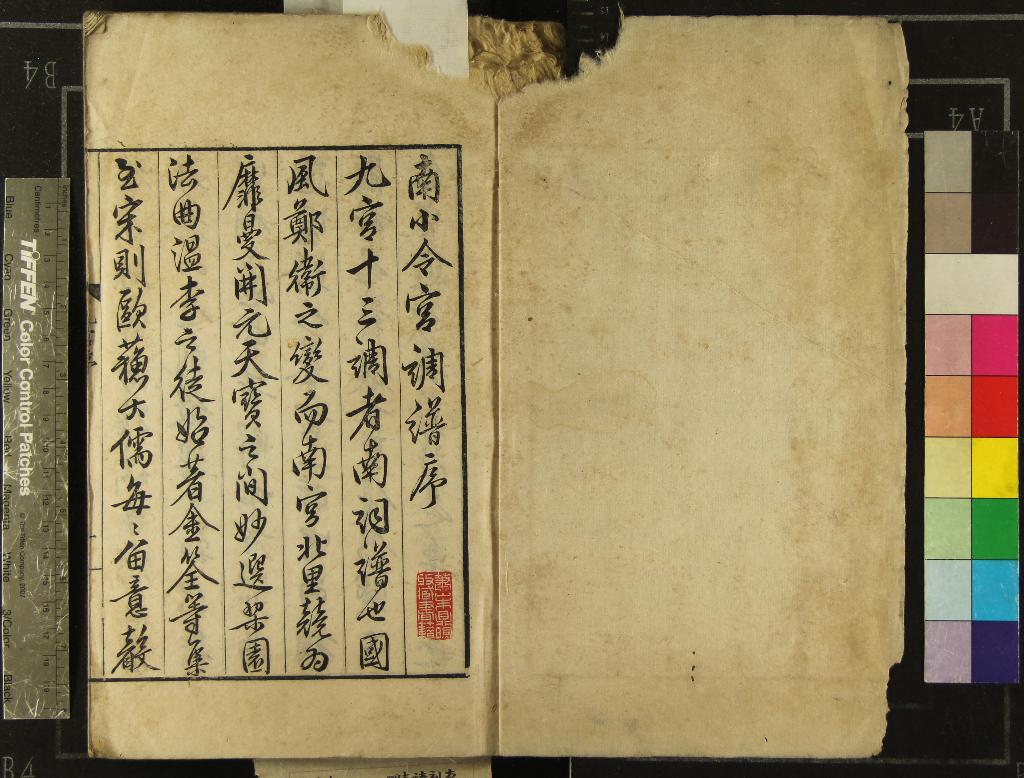 南小令宮調譜序
九宮十三調者南詞譜也國
風鄭衛之變而南宮北里競为
靡曼開元天寶之间妙選梨園
法曲溫李之徒始著金筌等集
至宋則歐蘓大儒每〻留意聲
TIFFEN Color Control Patches
© The Tiffen Company, 2007
Centimetres
Inches
Blue
Cyan
Green
Yellow
Red
Magenta
White
3/Color
Black
B4
A4
B4